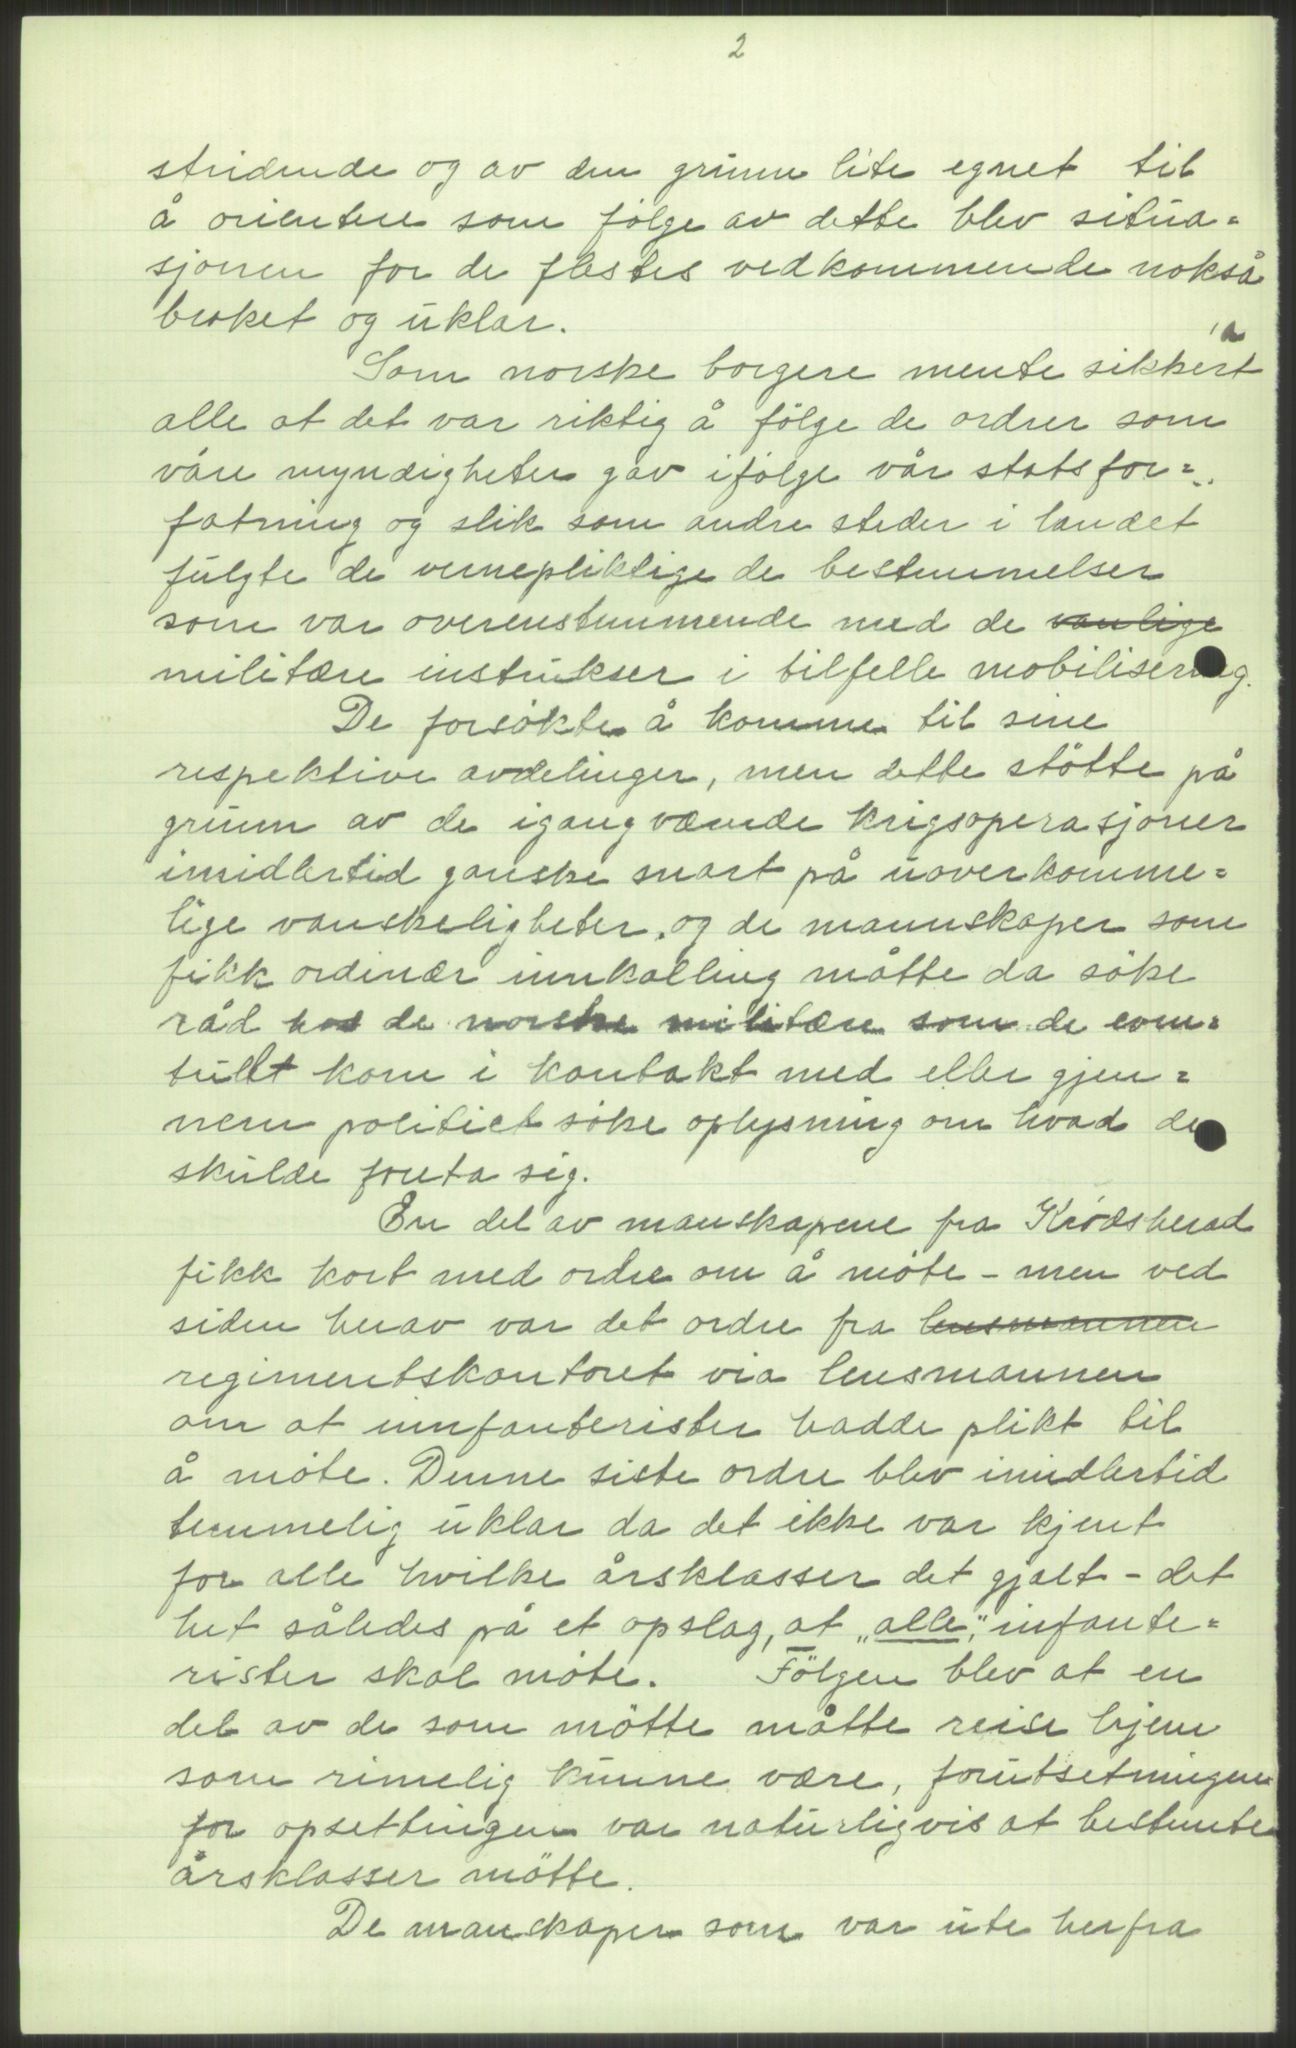 2
stridende og av den grunn lite egnet til
å orientere som følge av dette blev situa=
sjonen for de flestes vedkommende nokså
broket og uklar.
Som norske borgere mente sikkert
alle at det var riktig å følge de ordrer som
våre myndigheter gav ifølge vår statsfor=
fatning og slik som andre steder i landet
fulgte de vernepliktige de bestemmelser
som var overenstemmende med de vanlige
militære instrukser i tilfelle mobilisering.
De forsøkte å komme til sine
respektive avdelinger, men dette støtte på
grunn av de igangværende krigsoperasjoner
imidlertid ganske snart på uoverkomme=
lige vanskeligheter, og de mannskaper som
fikk ordinær innkalling måtte da søke
råd hos de norske militære som de even=
tuelt kom i kontakt med eller gjen=
nem politiet søke oplysning om hvad de
skulde foreta sig.
En del av manskapene fra Krødsherad
fikk kort med ordre om å møte - men ved
siden herav var det ordre fra lensmannen
regimentskontoret via lensmannen
om at innfanterister hadde plikt til
å møte. Denne siste ordre blev imidlertid
temmelig uklar da det ikke var kjent
for alle hvilke årsklasser det gjalt - det
het således på et opslag, at „alle" infante=
rister skal møte. Følgen blev at en
del av de som møtte måtte reise hjem
som rimelig kunne være, forutsetningen
for opsettingen var naturligvis at bestemte
årsklasser møtte.
De manskaper som var ute herfra